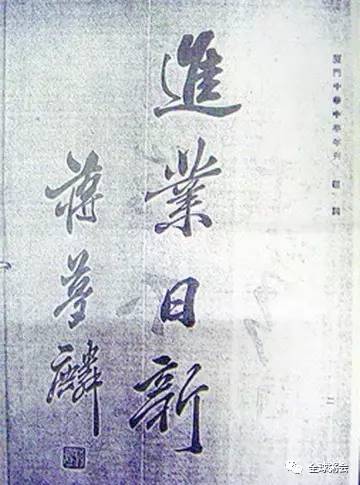 厦門中華中學年刊 題詞
二
進業日新
蔣夢麟
全球汤会